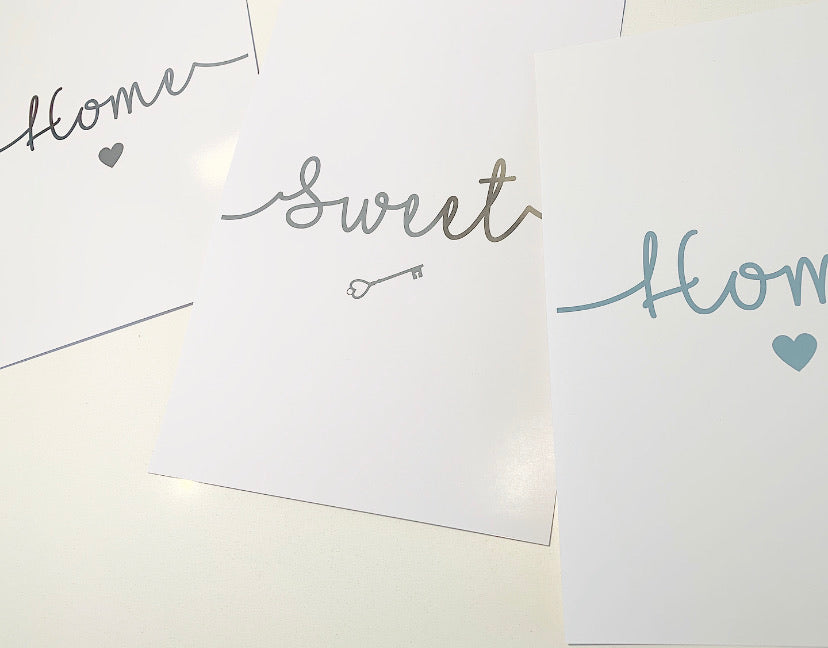 Home
Sweet
Hom